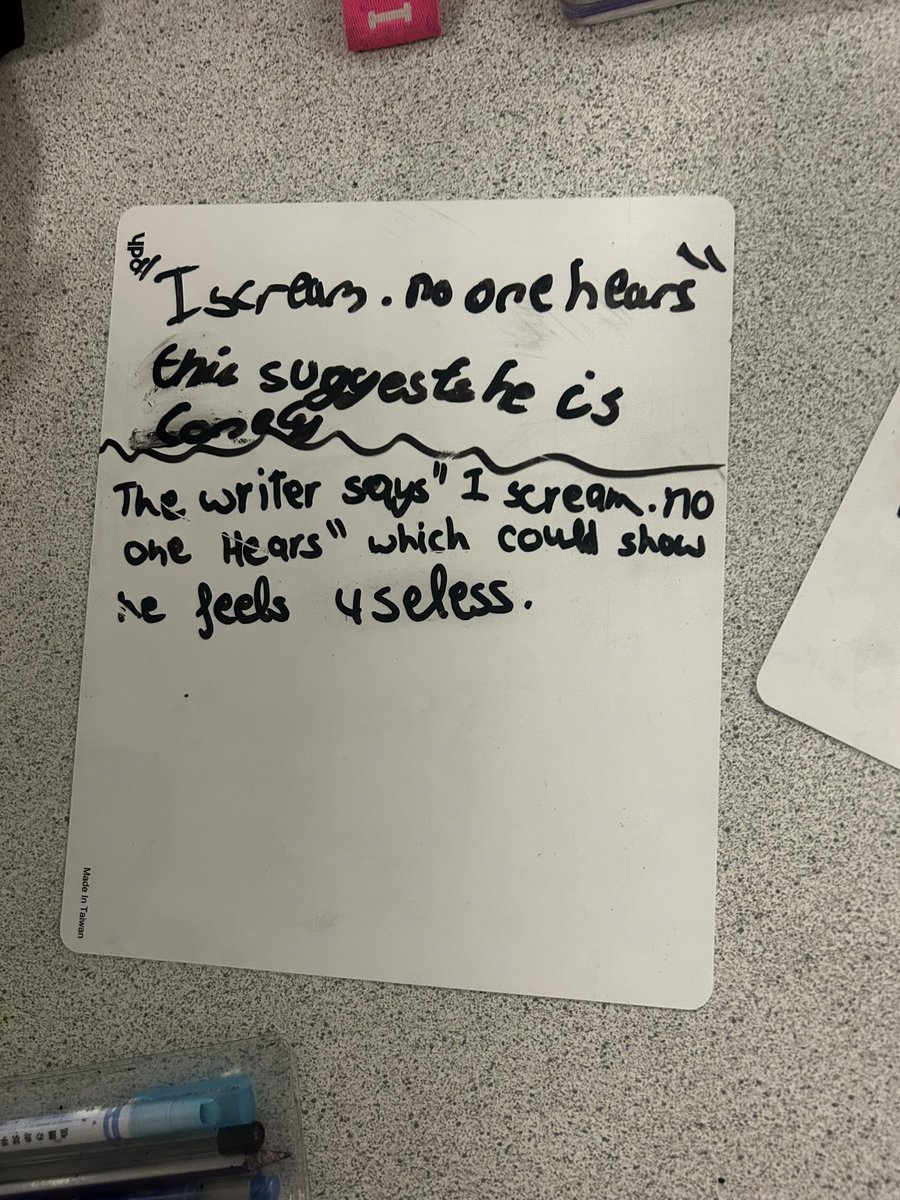 I
"I scream. no one hears"
this suggests he is
Lonely
The writer says "I scream. no
one Hears" which could show
he feels useless.
Made in Taiwan